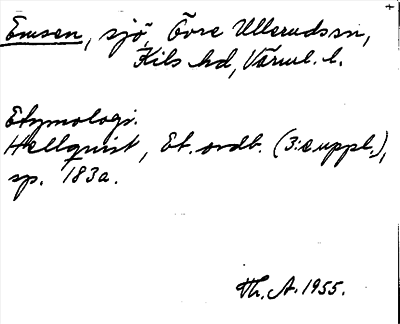 Emsen, sjö, Övre Ullerudssn,
Kils hd, Värml. l.
Etymologi.
Hellquist, Et. ordb. (3:e uppl.),
sp. 183a.
Th. A. 1955.